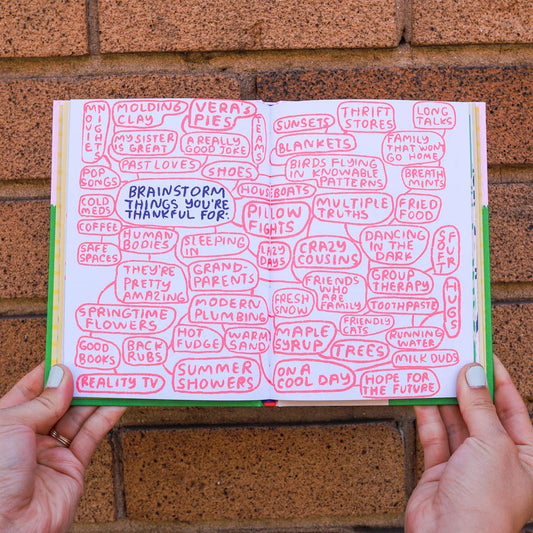 MOVIE
NIGHTS
MOLDING
CLAY
VERA'S
PIES
MY SISTER
IS GREAT
A REALLY
GOOD JOKE
PAST LOVES
SHOES
POP
SONGS
BRAINSTORM
THINGS YOU'RE
THANKFUL FOR:
COLD
MEDS
COFFEE
SAFE
SPACES
HUMAN
BODIES
SLEEPING
IN
THEY'RE
PRETTY
AMAZING
GRAND-
PARENTS
MODERN
PLUMBING
SPRINGTIME
FLOWERS
HOT
FUDGE
WARM
SAND
GOOD
BOOKS
BACK
RUBS
REALITY TV
SUMMER
SHOWERS
HOUSEBOATS
PILLOW
FIGHTS
LAZY
DAYS
SUNSETS
BLANKETS
THRIFT
STORES
LONG
TALKS
FAMILY
THAT WON'T
GO HOME
BIRDS FLYING
IN KNOWABLE
PATTERNS
BREATH
MINTS
MULTIPLE
TRUTHS
FRIED
FOOD
CRAZY
COUSINS
DANCING
IN THE
DARK
SOFT
FUR
FRIENDS
WHO ARE
FAMILY
GROUP
THERAPY
TOOTHPASTE
HUGS
FRESH
SNOW
FRIENDLY
CATS
MAPLE
SYRUP
TREES
RUNNING
WATER
MILK DUDS
ON A
COOL DAY
HOPE FOR
THE FUTURE